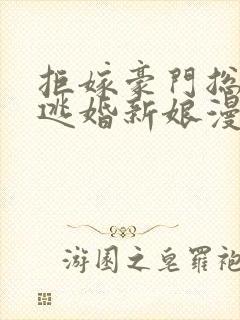 拒嫁豪門总
逃婚新娘漫
游園之皂羅袍